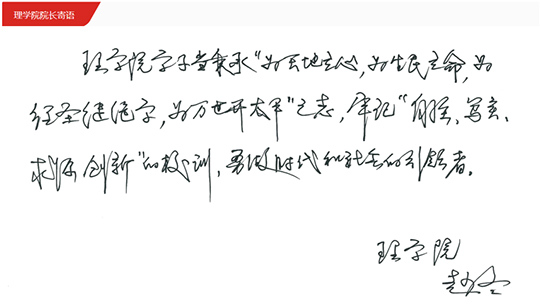 理学院院长寄语
理学院学子当秉承“为天地立心，为生民立命，为
往圣继绝学，为万世开太平”之志，牢记“自强、笃实、
求源、创新”的校训，勇做时代和社会的引领者。
理学院